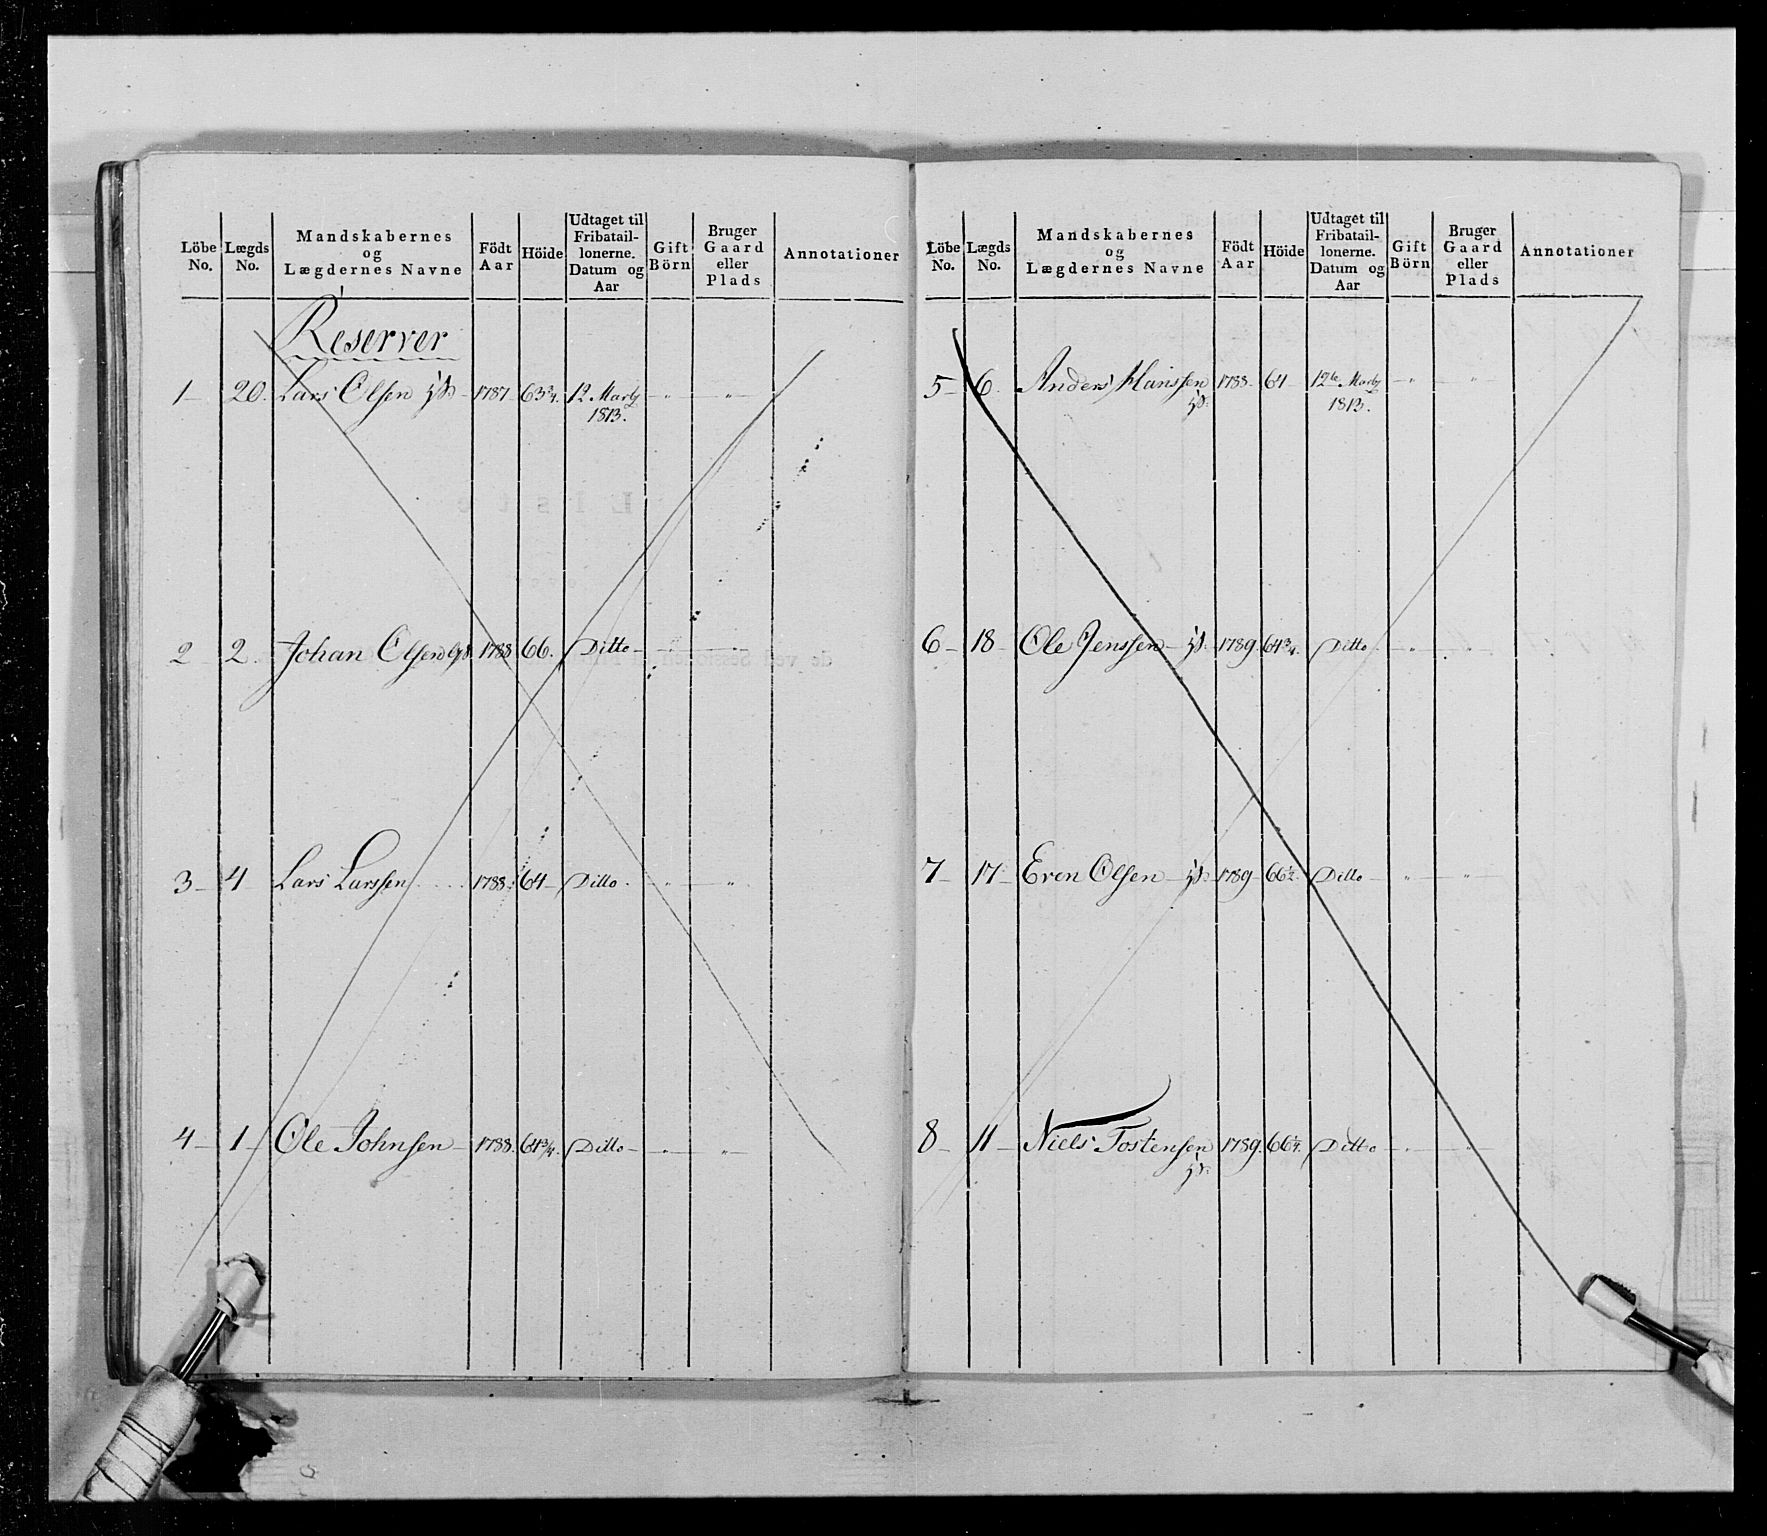 Löbe No. Lægds No. Mandskabernes og Lægdernes Navne Födt Aar Höide Udtaget til Fribataillonerne. Datum og Aar Gift Börn Bruger Gaard eller Plads Annotationer
Reserver
1 20. Lars Olsen 1787 63¾. 12 Marty 1813. - " - - " -
2 2. Johan Olsen 1788 66. Ditto - " - - " -
3 4 Lars Larssen 1788. 64 Ditto. " - - " -
4 1 Ole Johnsen 1788. 64¾. Ditto - " - - " -
Löbe No. Lægds No. Mandskabernes og Lægdernes Navne Födt Aar Höide Udtaget til Fribataillonerne. Datum og Aar Gift Börn Bruger Gaard eller Plads Annotationer
5 6. Anders Hanssen 1788 64 12te Marty 1813. - " - - " -
6 18 Ole Jenssen 1789 64¾. Ditto - " - - " -
7 17 Even Olsen 1789 66½. Ditto - " - - " -
8 11 Niels Tostensen 1789. Ditto - " - - " -